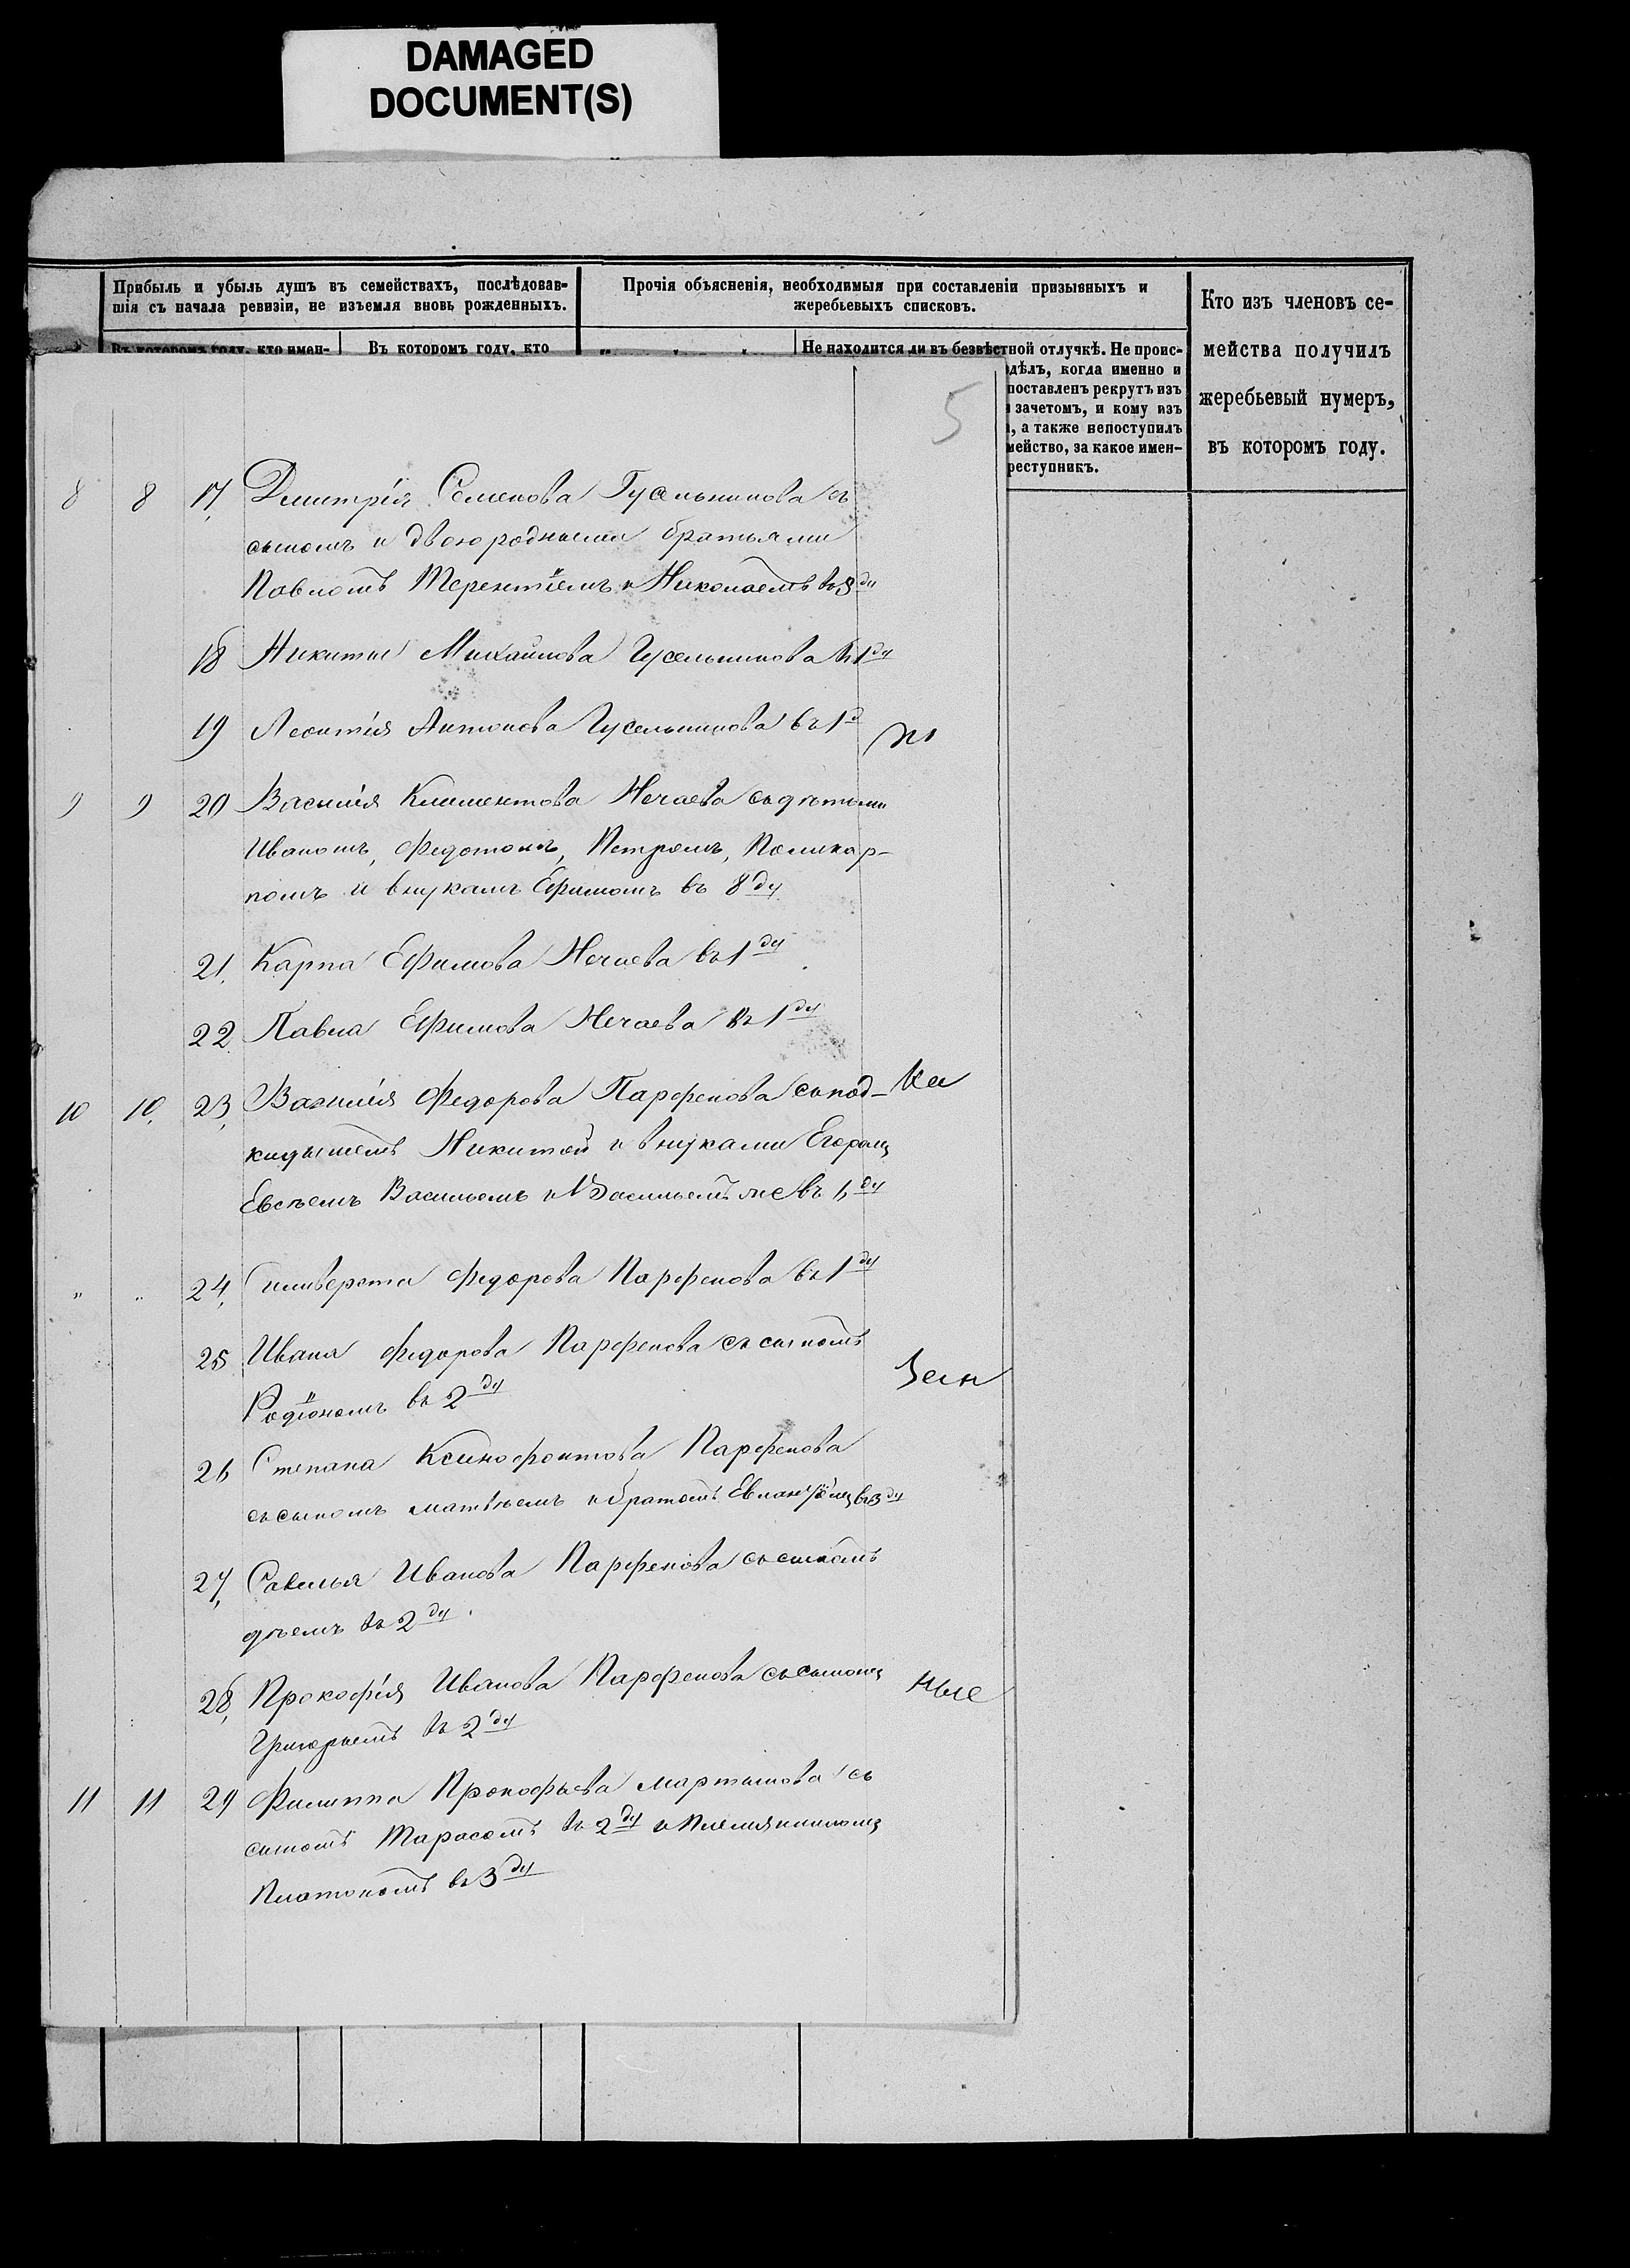 DAMAGED
DOCUMENT(S)
Прибыль и убыль душъ въ семействахъ, послѣдовав-
шія съ начала ревизіи, не изъемля вновь рожденныхъ.
Прочія объясненія, необходимыя при составленіи призывныхъ и
жеребьевыхъ списковъ.
Кто изъ членовъ се-
мейства получилъ
жеребьевый нумеръ,
въ которомъ году.
Въ которомъ году, кто имен-
Въ которомъ году, кто
Не находится ли въ безвѣстной отлучкѣ. Не проис-
дѣлъ, когда именно и
поставленъ рекрутъ изъ
зачетомъ, и кому изъ
, а также непоступилъ
мейство, за какое имен-
реступникъ.
5
8 8 17, Дмитрія Семенова Гусельникова съ
сыномъ и двоюродными братьями
Павломъ Терентіемъ и Николаемъ въ 8 ду
18 Никиты Михайлова Гусельникова въ 1 ду
19 Леонтія Антонова Гусельникова въ 1 д
9 9 20 Василія Климентова Нечаева съ дѣтьми
Иваномъ, Федотомъ, Петромъ, Поликар-
помъ и внукамъ Ефимомъ въ 8 ду
21. Карпа Ефимова Нечаева въ 1 ду
22 Павла Ефимова Нечаева въ 1 ду
10 10. 23, Василія Федорова Парфенова съ под-
кидышемъ Никитой и внуками Егоромъ
Евсѣемъ Васильемъ и Васильемъ же въ ду
" " 24, Сильверста Федорова Парфенова въ 1 ду
25 Ивана Федорова Парфенова съ сыномъ
Родіономъ въ 2 ду
26 Степана Ксинофонтова Парфенова
съ сыномъ Матвѣемъ и братомъ въ 3 ду
27, Савелья Иванова Парфенова съ сыномъ
въ 2 ду.
28, Прокофія Иванова Парфенова съ сыномъ
Григорьемъ въ 2 ду
ные
11 11 29 Филиппа Прокофьева Мартынова съ
сыномъ Тарасомъ въ 2 ду и племянникомъ
Платономъ въ 3 ду